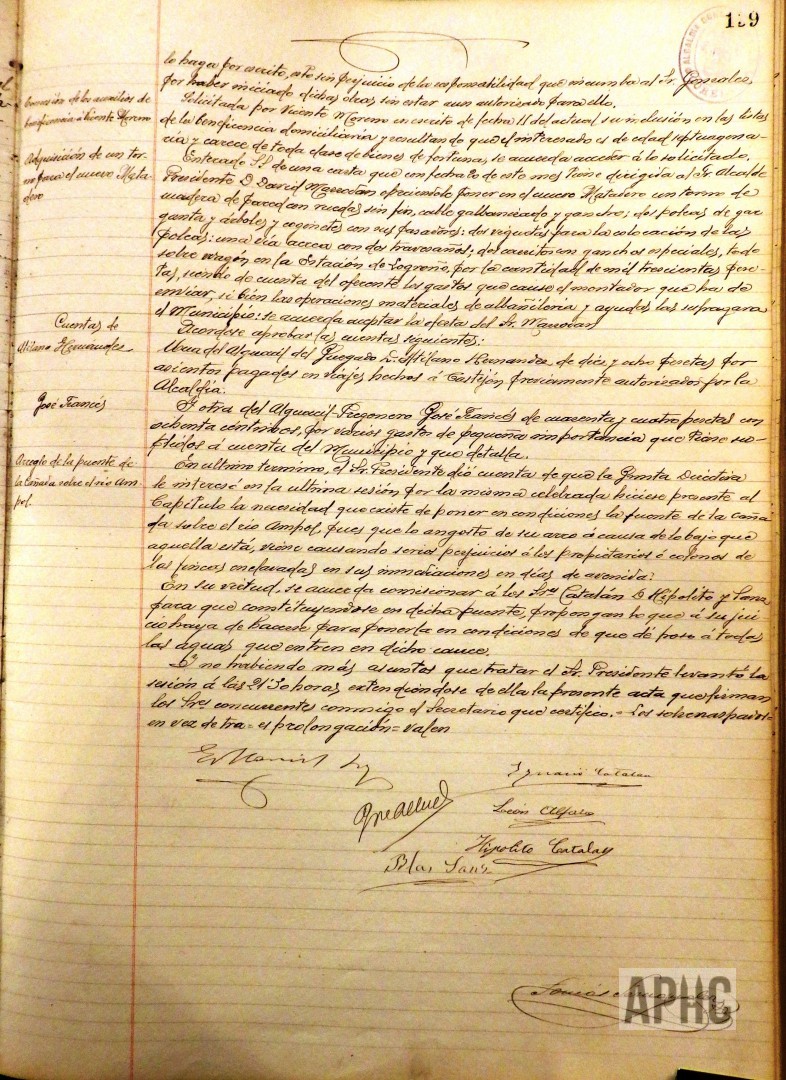 139
lo haga por escrito, esto sin perjuicio de la responsabilidad que incumba al Sr. Gonzalez,
por haber iniciado dichas obras sin estar aun autorizado para ello.
Concesión de los auxilios de
beneficencia á Vicente Moreno
Solicitada por Vicente Moreno en escrito de fecha 11 del actual su inclusión en las listas
de la beneficencia domiciliaria y resultando que el interesado es de edad septuagena-
ria y carece de toda clase de bienes de fortuna, se acuerda acceder á lo solicitado.
Adquisición de un tor-
no para el nuevo Mata-
dero
Enterado S.S. de una carta que con fecha 20 de este mes tiene dirigida al Sr. Alcalde
Presidente D. David ofreciendo poner en el nuevo Matadero un torno de
madera de pared con ruedas sin fin, cable galvanizado y gancho; dos poleas de gar-
ganta y árboles y cogenetes con sus pasadores; dos viguetas para la colocación de las
poleas; una vía aerea con dos travesaños; dos carritos con ganchos especiales, todo
sobre vagón en la Estación de Logroño, por la cantidad de mil trescientas pese-
tas, siendo de cuenta del oferente los gastos que cause el montador que ha de
enviar, si bien las operaciones materiales de albañileria y ayudas las sufragara
el Municipio: se acuerda aceptar la oferta del Sr.
Acordose aprobar las cuentas siguientes:
Cuentas de
Atilano Hernandez
Una del Alguacil del Juzgado D. Atilano Hernandez de diez y ocho pesetas por
asientos pagados en viajes hechos á Castejón previamente autorizados por la
Alcaldía.
José Francés
Y otra del Alguacil-Pregonero José Francés de cuarenta y cuatro pesetas con
ochenta centimos, por varios gastos de pequeña importancia que tiene su-
plidos á cuenta del Municipio y que detalla.
Arreglo de la puente de
la Cañada sobre el rio Am-
pol.
En ultimo termino, el Sr. Presidente dió cuenta de que la Junta Directiva
le interesó en la ultima sesión por la misma celebrada hiciese presente al
Capitulo la necesidad que existe de poner en condiciones la puente de la Caña-
da sobre el rio Ampol, pues que lo angosto de su arco á causa de lo bajo que
aquella está, viene causando serios perjuicios á los propietarios ó colonos de
las fincas enclavadas en sus inmediaciones en días de avenida.
En su virtud, se acuerda comisionar á los Sres Catalán D. Hipólito y Sanz
para que constituyendose en dicha puente, propongan lo que á su jui-
cio haya de hacerse para ponerla en condiciones de que dé paso á todas
las aguas que entren en dicho cauce.
Y no habiendo más asuntos que tratar el Sr. Presidente levantó la
sesión á las 21'30 horas extendiéndose de ella la presente acta que firman
los Sres concurrentes conmigo el Secretario que certifico.=Los sobrerraspados=
en vez de tra= es prolongación= valen
Ignacio Catalan
León Alfaro
Hipolito Catalan
Blas Sanz
APHC